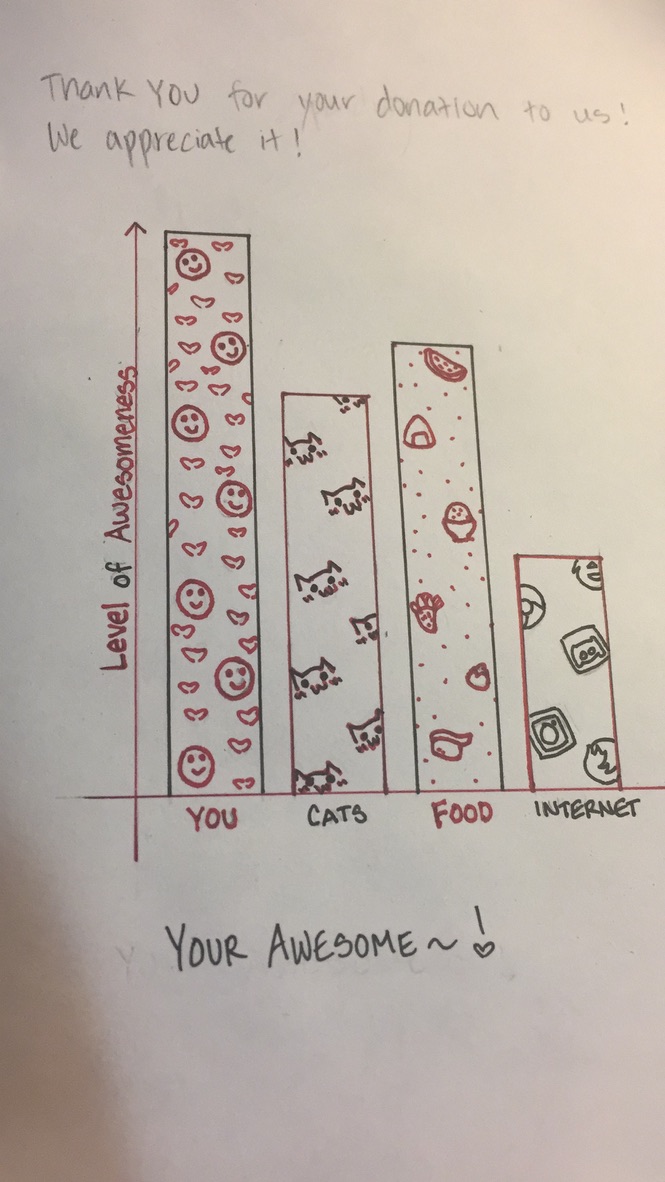 Thank YOU for your donation to us!
We appreciate it!
Level of Awesomeness
YOU
CATS
FOOD
INTERNET
YOUR AWESOME ~!